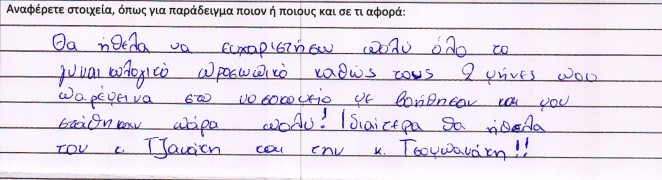 Αναφέρετε στοιχεία, όπως για παράδειγμα ποιον ή ποιους και σε τι αφορά:
Θα ήθελα να ευχαριστήσω πολύ όλο το
γυναικολογικό προσωπικό καθώς τους 2 μήνες που
παρέμεινα στο νοσοκομείο με βοήθησαν και μου
στάθηκαν πάρα πολύ! Ιδιαίτερα θα ήθελα
τον κ. Τζανάκη και την κ. Τσομπανάκη!!